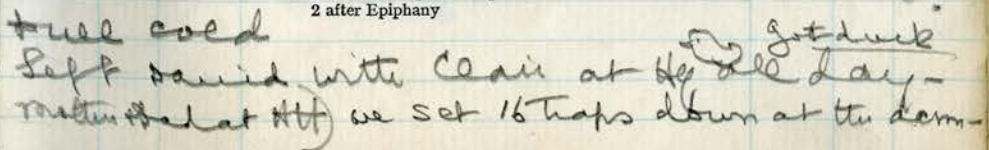 2 after Epiphany
full cold got duck
Left David with Clair at Hg all day -
Mother & Dad at AH) we set 16 traps down at the dam -